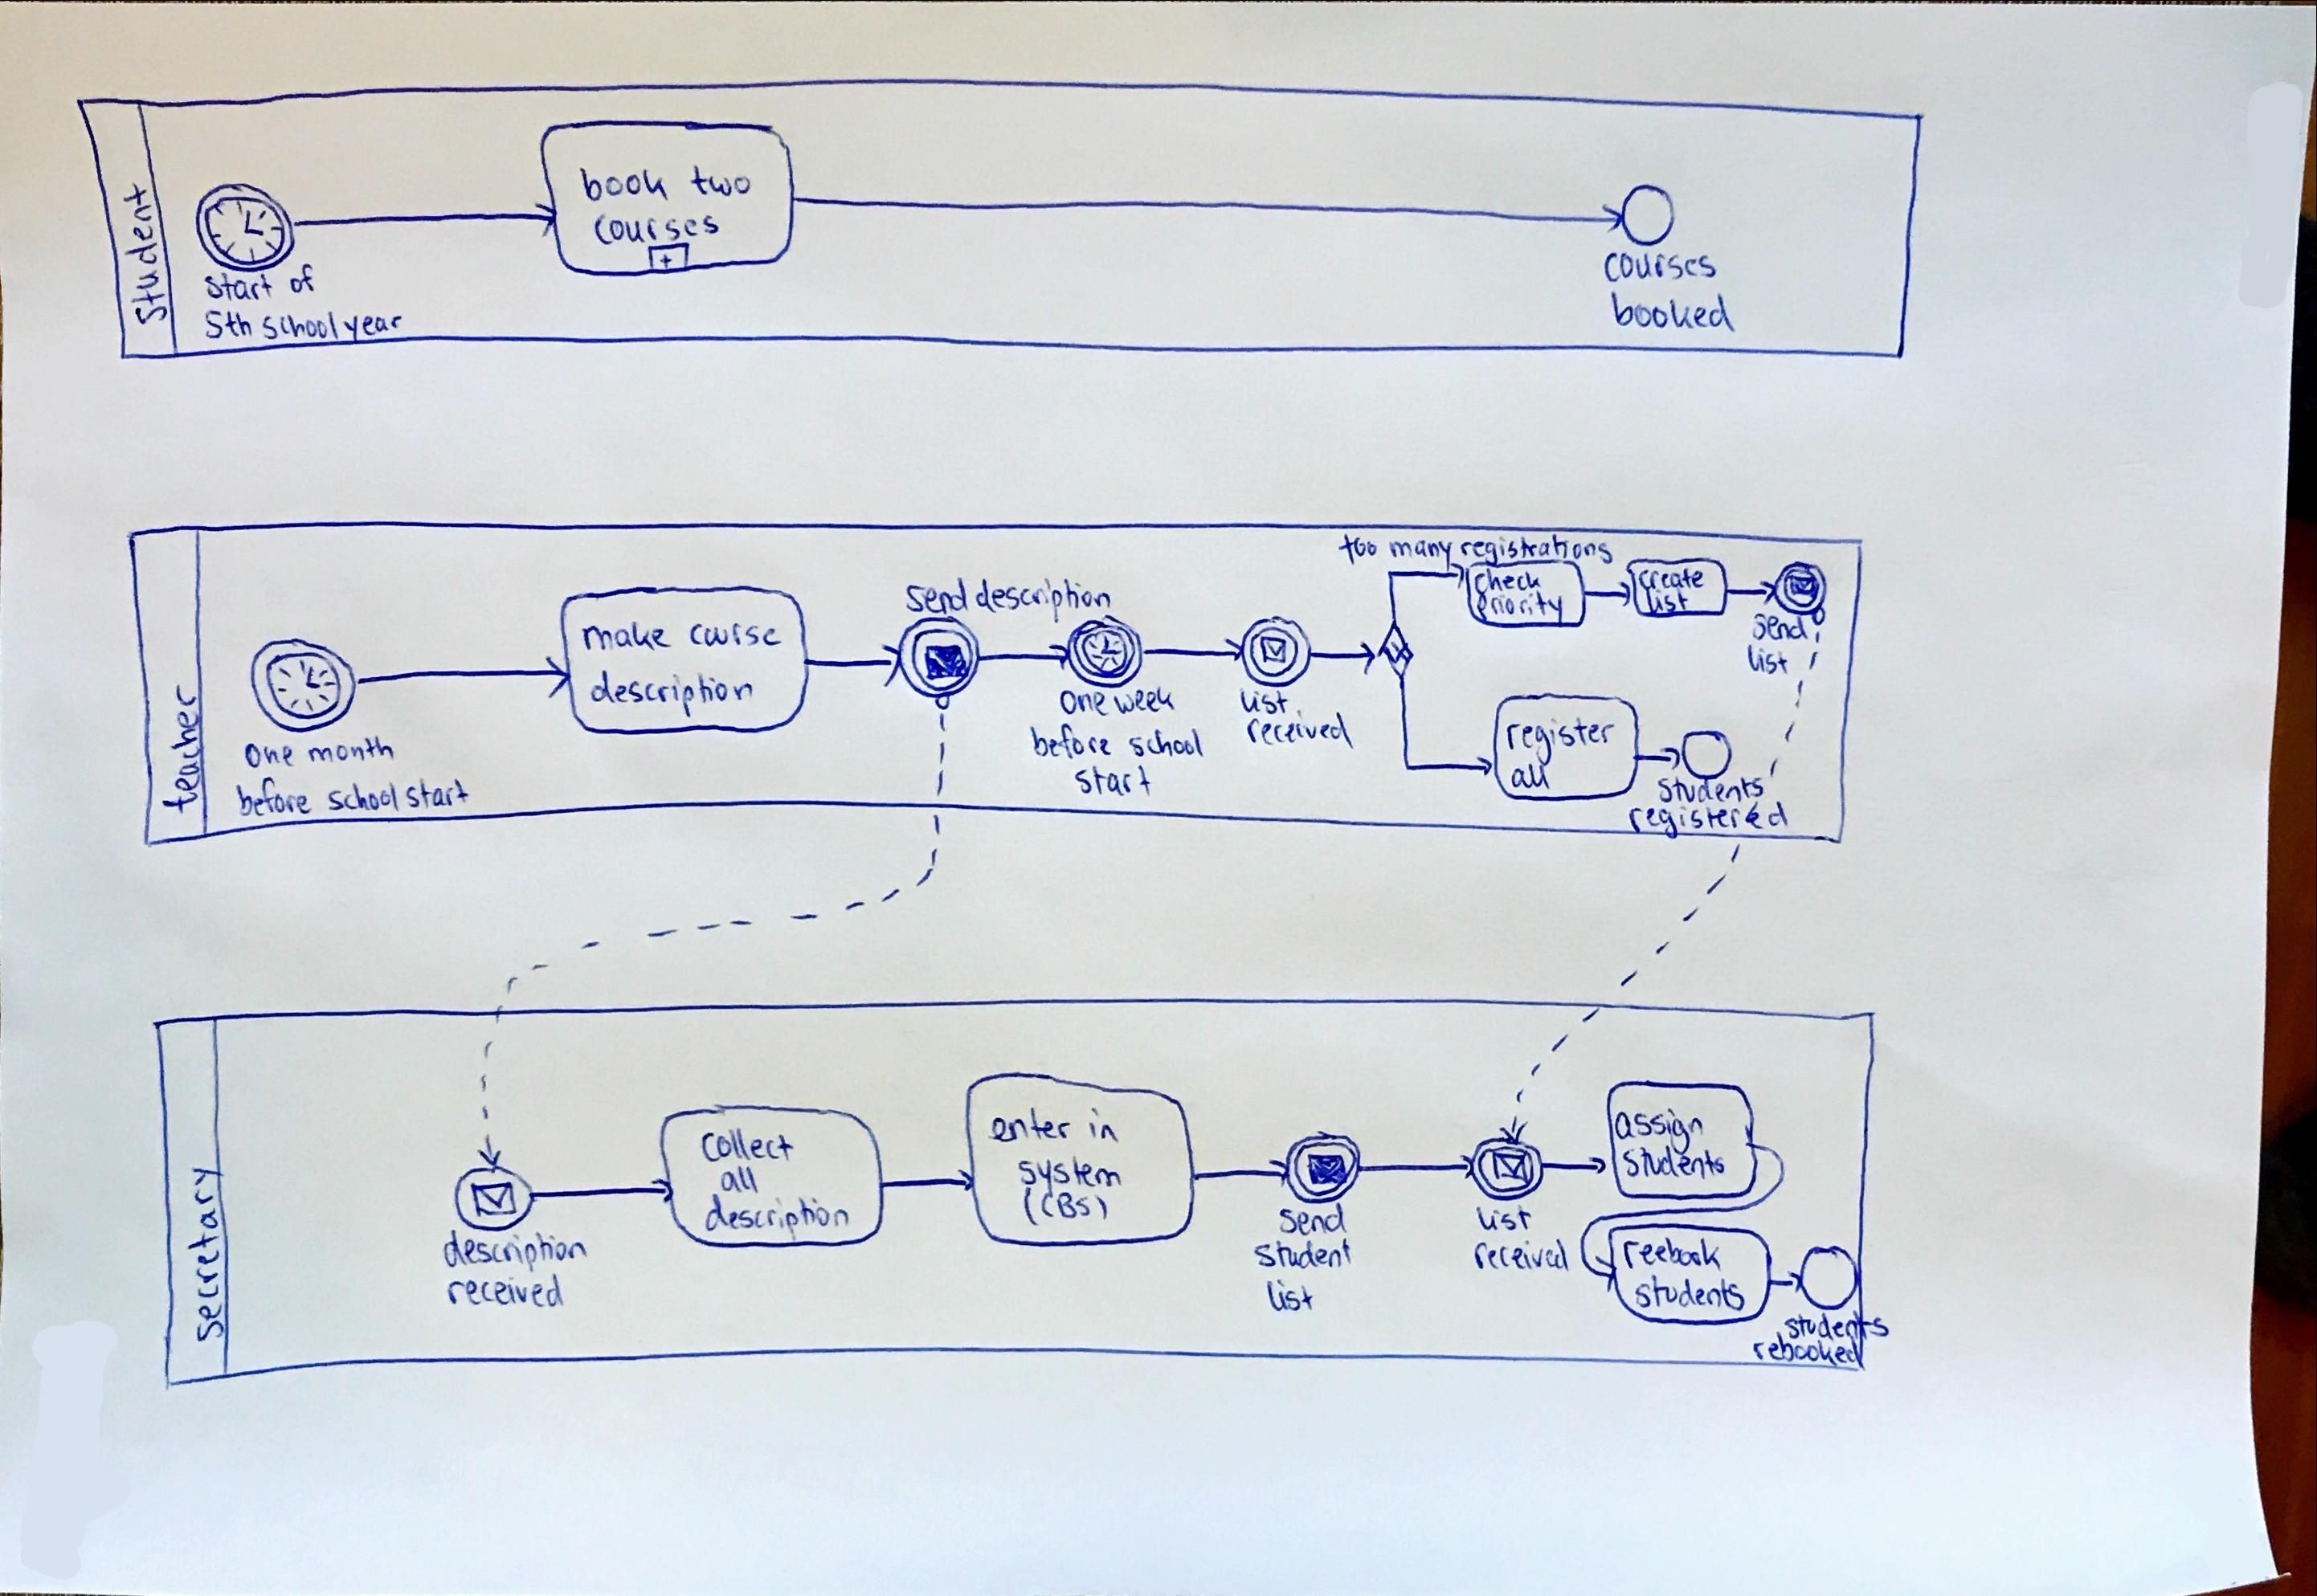 Student
book two
courses
+
start of
5th school year
courses
booked
teacher
one month
before school start
make course
description
send description
one week
before school
start
list
received
too many registrations
check
priority
create
list
send
list
register
all
students
registered
secretary
description
received
collect
all
description
enter in
system
(CBS)
send
student
list
list
received
assign
students
reebook
students
students
rebooked